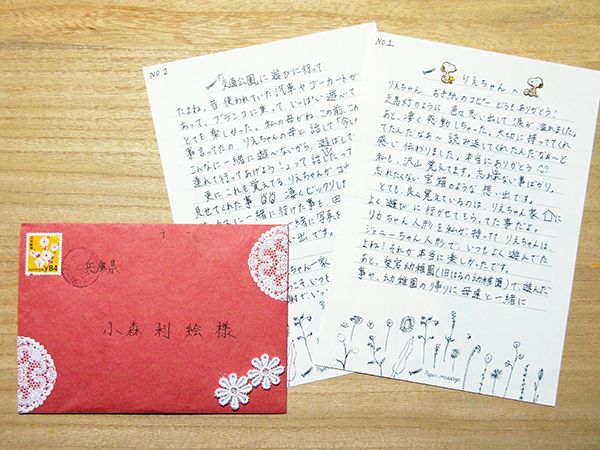 NO 1
りえちゃんへ
りえちゃん お手紙のコピーどうもありがとう!
走馬灯のように 色々思い出して涙が溢れました。
あと、凄く感動しちゃった。大切に持っててくれ
てたんだなぁ〜 読み返してくれたんだなぁ〜と
感じ伝わりました。本当にありがとう
私も、沢山覚えてます。忘れない事ばかり。
忘れたくない宝箱のような想い出です。
とても、良く覚えているのは、りえちゃん家に
よく遊びに行かせてもらってた事だよ。
りかちゃん人形を私が、持ってりえちゃんは、
ジェニーちゃん人形で、いつもよく遊んでた
よね!それが本当に楽しかったです。
幼稚園)で遊んだ
事や、幼稚園の帰りに母達と一緒に
Paper message
NO 2
「交通公園」に遊びに行って
たよね。昔使われていた汽車やゴーカートが
あって、ブランコに乗って、いっぱい遊べて
とても楽しかった。私の母がね、この前
事言ってたの。りえちゃんの母と話して「今し
こんなに一緒に遊べないから、遊ばして
連れて行ってあげよう!」って話
更にこれも覚えてる りえちゃんが
見せてくれた事 凄くビックリした
一緒に行けた事も。
一緒に写真を
出です。
ちゃん一家
いつも
兵庫県
小森利絵様
84